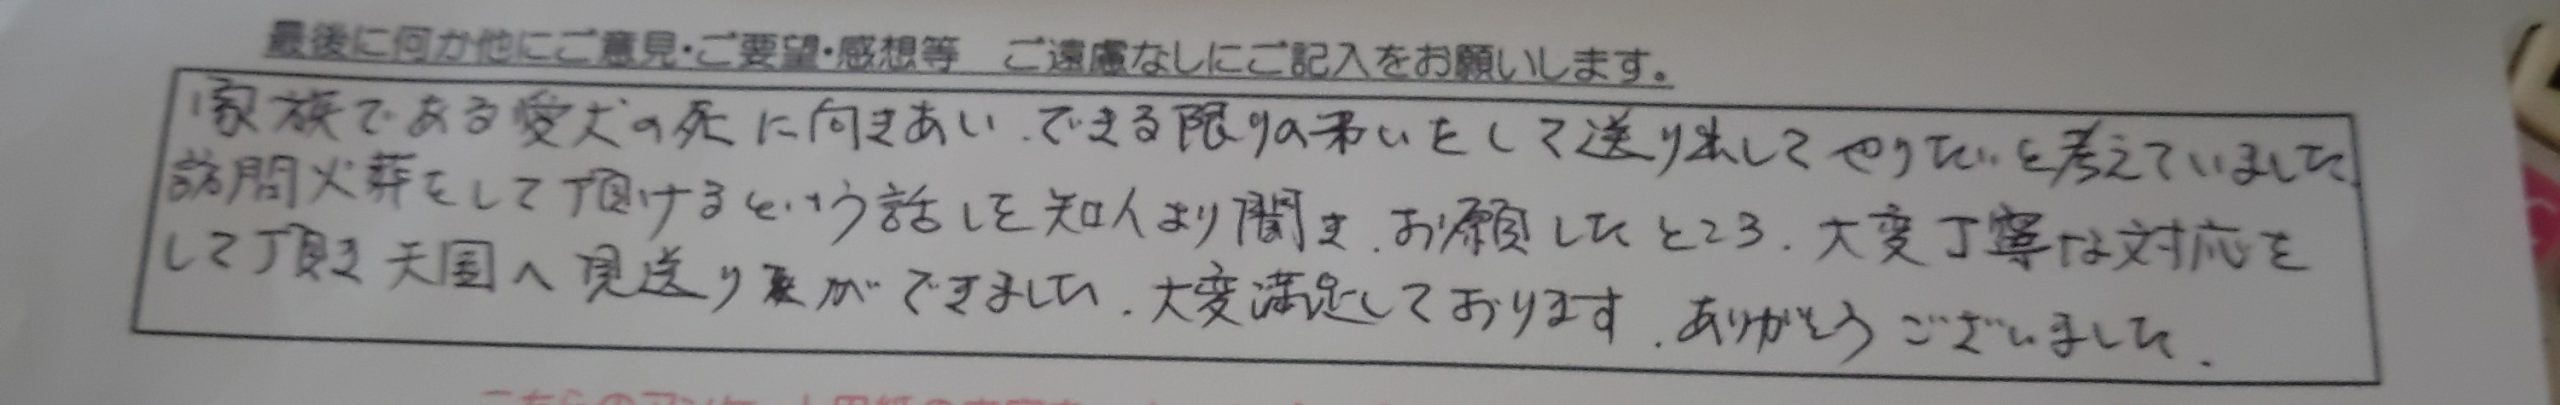 最後に何か他にご意見・ご要望・感想等　ご遠慮なしにご記入をお願いします。
家族である愛犬の死に向きあい、できる限りの弔いをして送り出してやりたいと考えていました。
訪問火葬をして頂けるという話しを知人より聞き、お願したところ、大変丁寧な対応を
して頂き天国へ見送りができました。大変満足しております。ありがとうございました。